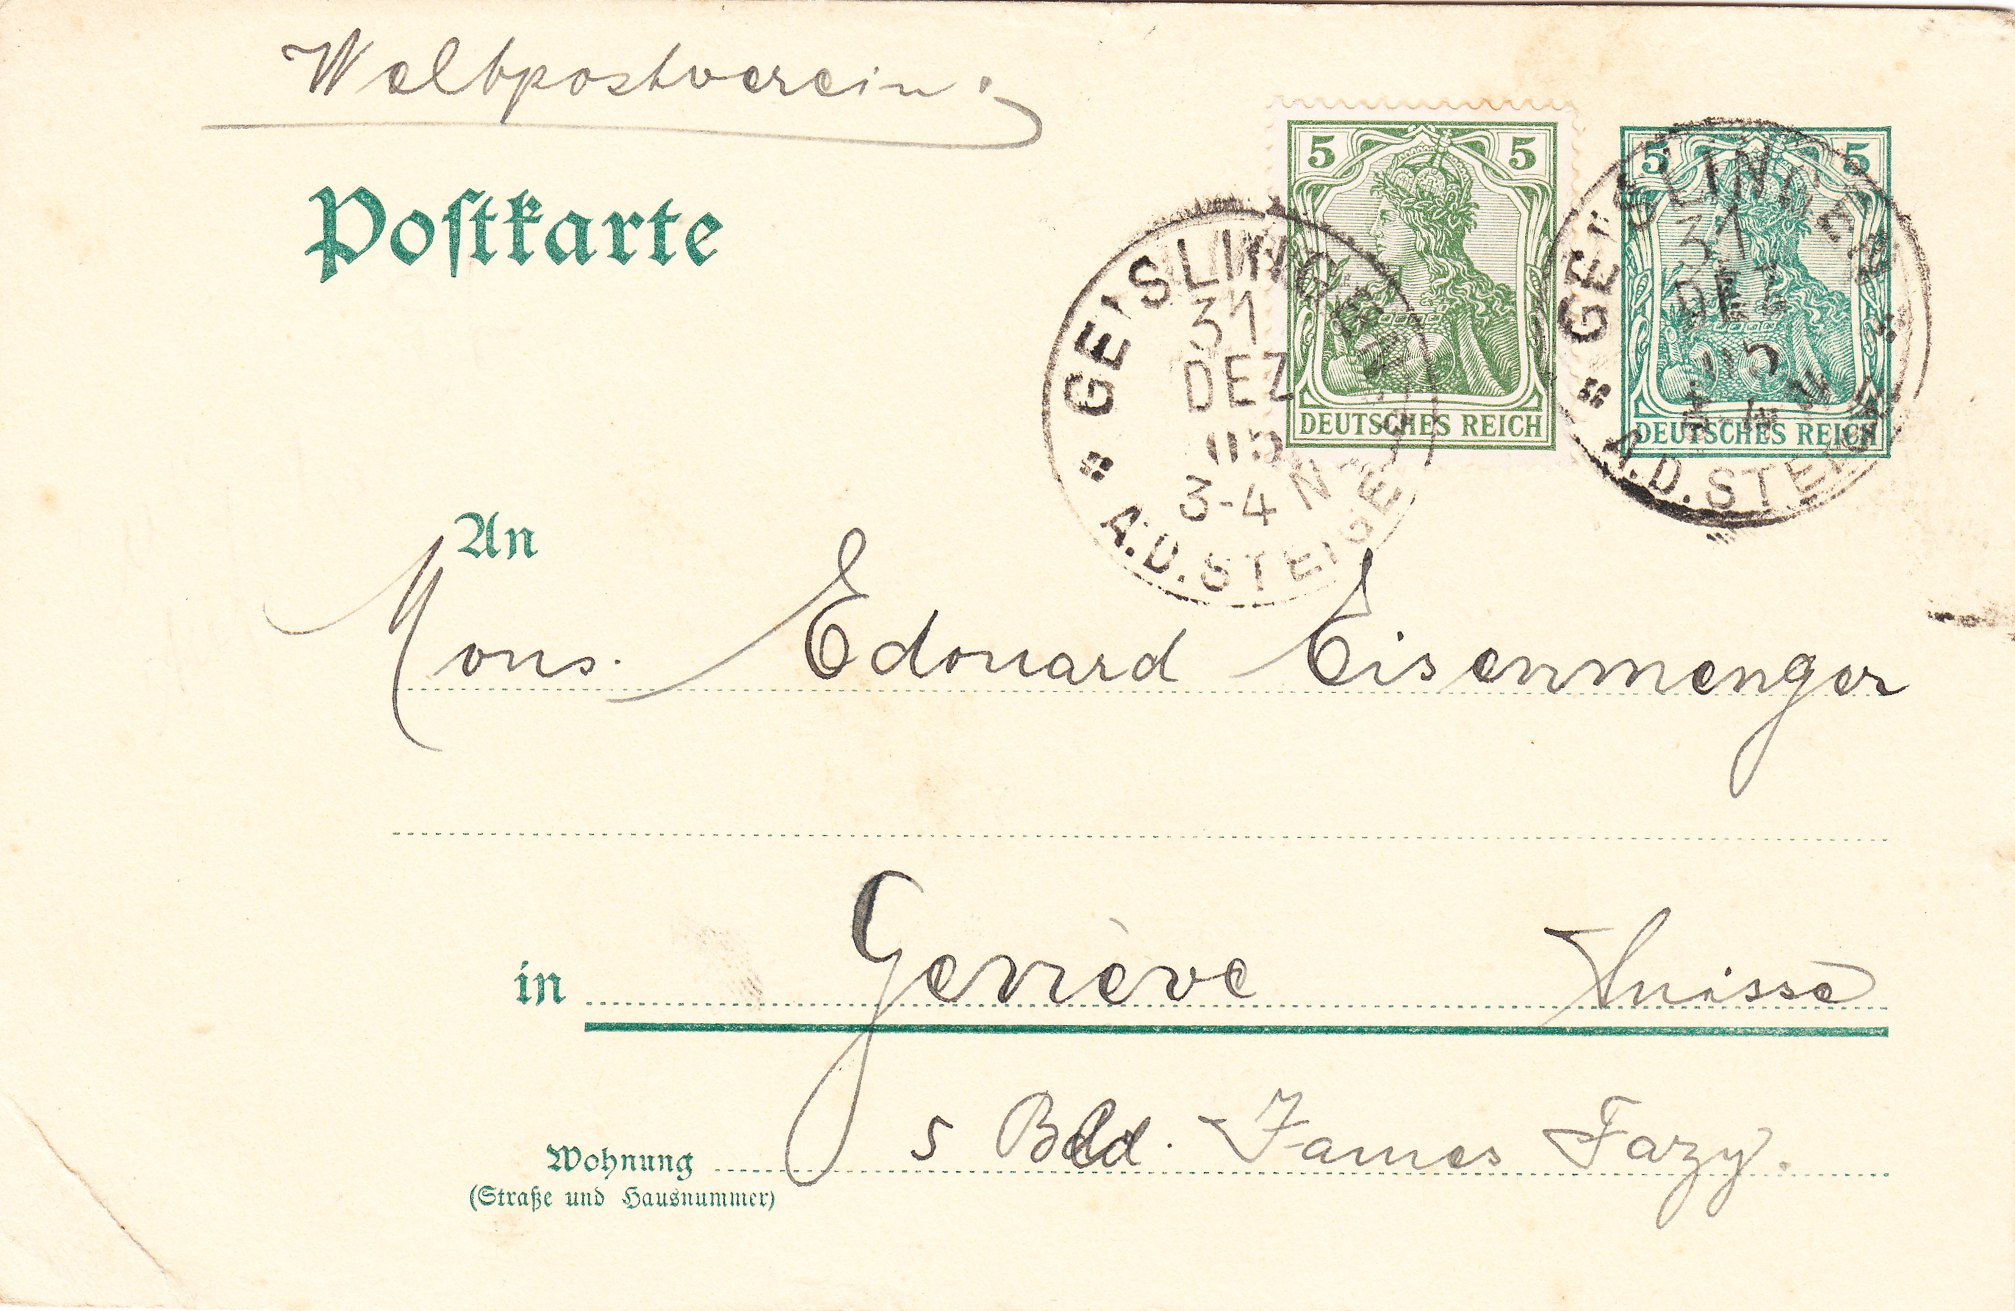 Weltpostverein.
Postkarte
5 5
DEUTSCHES REICH
5 5
DEUTSCHES REICH
GEISLINGEN
31
DEZ
05
3-4 N
A.D. STEIGE
GEISLINGEN
31
DEZ
05
A.D. STEIGE
An
Mons. Edouard Eisenmenger
in Genève Suisse
5 Bld. James Fazy.
Wohnung
(Straße und Hausnummer)